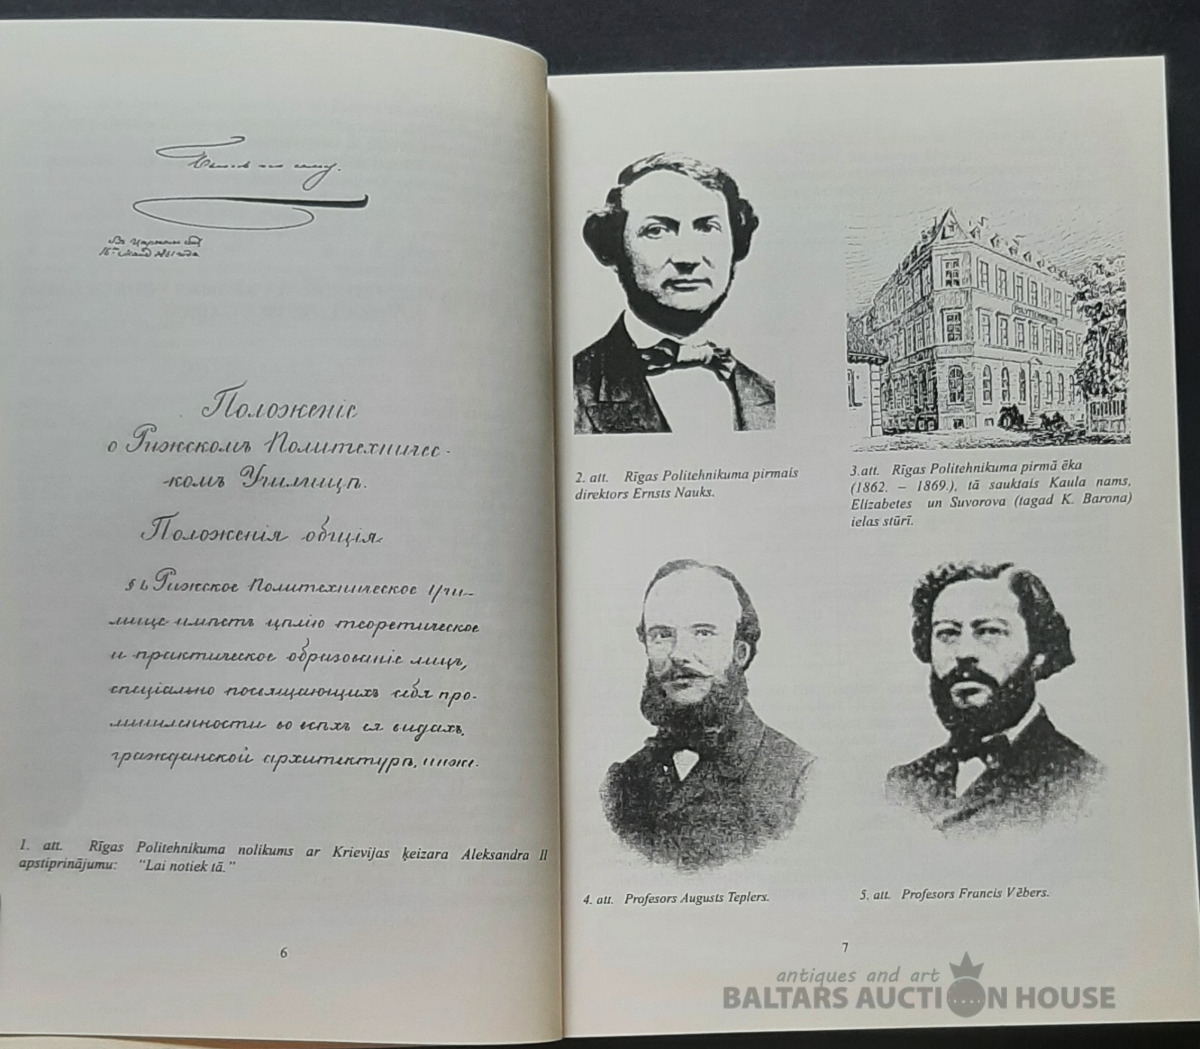 Быть по сему.
Въ Царскомъ Селѣ
16го Мая 1861 года
Положеніе
о Рижскомъ Политехничес-
комъ Училищѣ.
Положенія общія
§ 1. Рижское Политехническое Учи-
лище имѣетъ цѣлію теоретическое
и практическое образованіе лицъ,
спеціально посвящающихъ себя про-
мышленности во всѣхъ ея видахъ,
гражданской архитектурѣ, инже-
1. att. Rīgas Politehnikuma nolikums ar Krievijas ķeizara Aleksandra II
apstiprinājumu: "Lai notiek tā."
6
POLYTECHNIKUM
2. att. Rīgas Politehnikuma pirmais
direktors Ernsts Nauks.
3.att. Rīgas Politehnikuma pirmā ēka
(1862. – 1869.), tā sauktais Kaula nams,
Elizabetes un Suvorova (tagad K. Barona)
ielas stūrī.
4. att. Profesors Augusts Teplers.
5. att. Profesors Francis Vēbers.
7
antiques and art
BALTARS AUCTION HOUSE